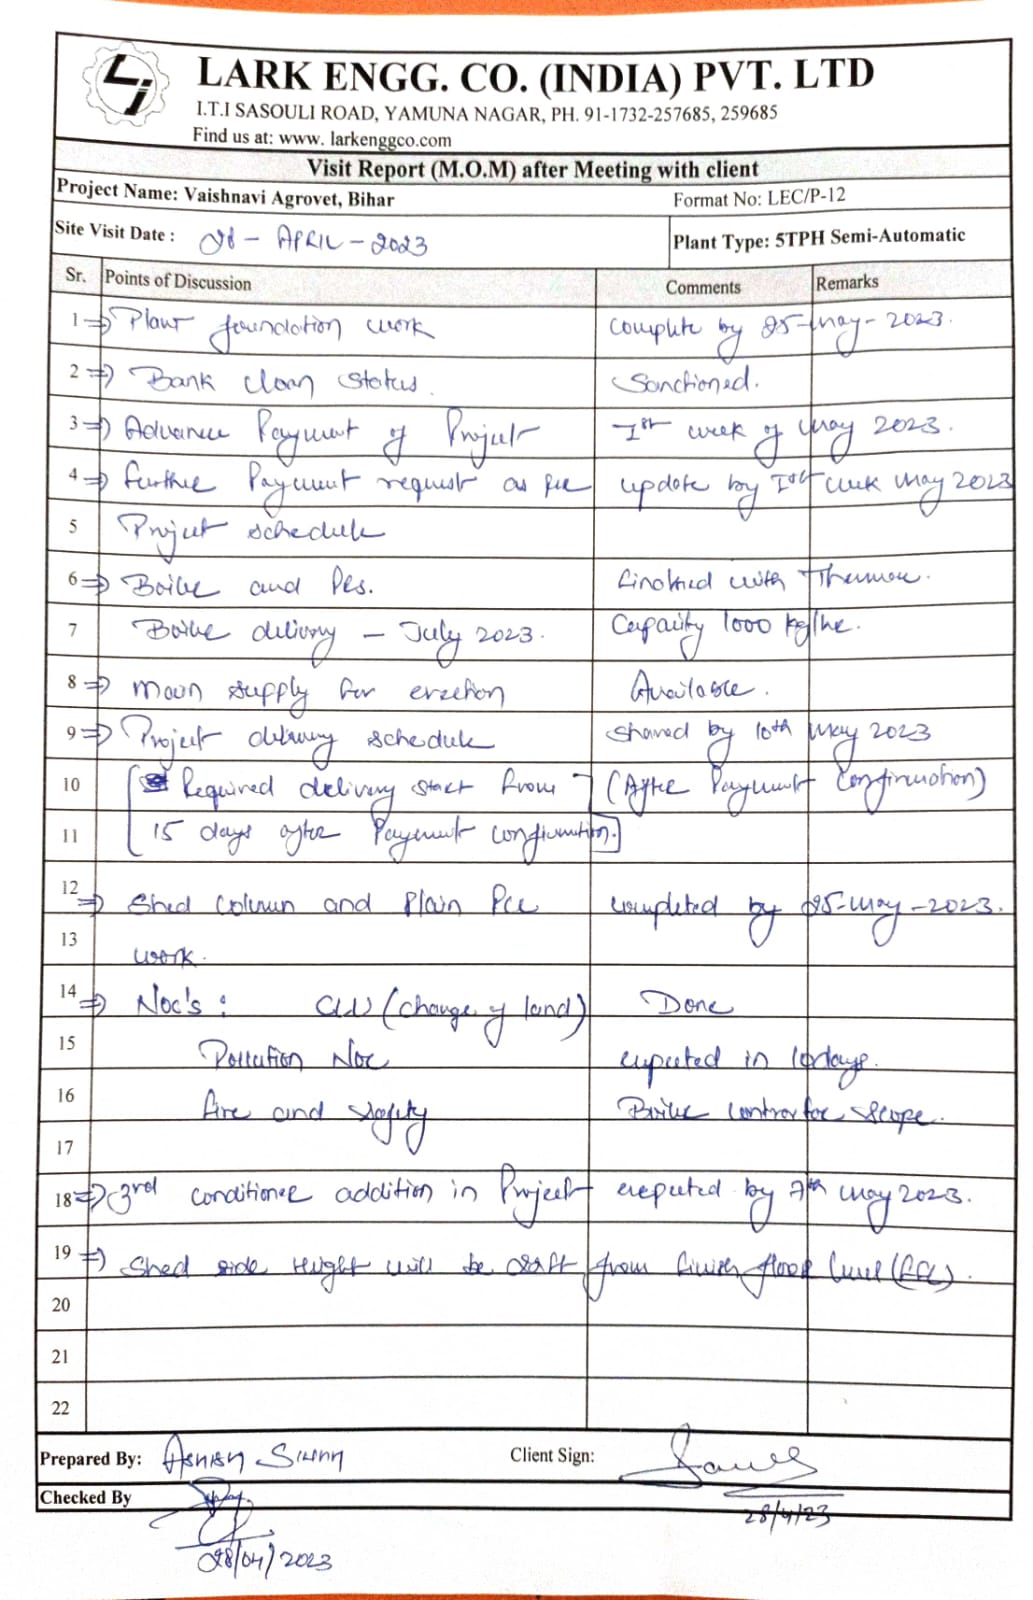 LARK ENGG. CO. (INDIA) PVT. LTD
I.T.I SASOULI ROAD, YAMUNA NAGAR, PH. 91-1732-257685, 259685
Find us at: www. larkenggco.com
Visit Report (M.O.M) after Meeting with client
Project Name: Vaishnavi Agrovet, Bihar Format No: LEC/P-12
Site Visit Date : 28 - APRIL - 2023 Plant Type: 5TPH Semi-Automatic
Sr. Points of Discussion Comments Remarks
1 ⇒ Plant foundation work complete by 25-may-2023.
2 ⇒ Bank loan status. Sanctioned.
3 ⇒ Advance Payment of Project 1st week of may 2023.
4 ⇒ further Payment request as per update by 1st week may 2023
5 Project schedule
6 ⇒ Boiler and PRS. finalized with Thermax.
7 Boiler delivery - July 2023. Capacity 1000 kg/hr.
8 ⇒ main supply for erection Available.
9 ⇒ Project delivery schedule shared by 10th may 2023
10 [ Required delivery start from ] (After Payment confirmation)
11 [ 15 days after Payment confirmation.]
12 ⇒ Shed column and Plain Pcc completed by 25-may-2023.
13 work.
14 ⇒ Noc's : CLU (change of land) Done
15 Pollution Noc expected in 10 days.
16 fire and safety Boiler contractor scope.
17
18 ⇒ 3rd conditioner addition in Project expected by 7th may 2023.
19 ⇒ Shed side height will be 28ft from finish floor level (FFL).
20
21
22
Prepared By: ASHISH Client Sign:
Checked By
28/4/23
28/04/2023